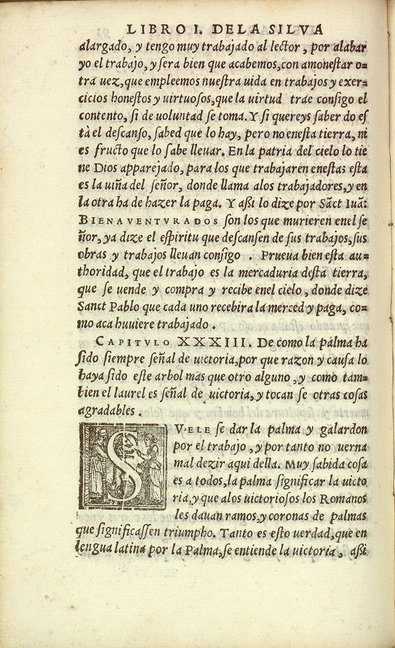 LIBRO I. DELA SILVA
alargado, y tengo muy trabajado al lector, por alabar
yo el trabajo, y sera bien que acabemos, con amonestar o-
tra vez, que empleemos nuestra vida en trabajos y exer-
cicios honestos y virtuosos, que la virtud trae consigo el
contento, si de voluntad se toma. Y si quereys saber do es
tà el descanso, sabed que lo hay, pero no enesta tierra, ni
es fructo que lo sabe llevar. En la patria del cielo lo tie
ne Dios apparejado, para los que trabajaren enestas esta
es la uiña del señor, donde llama alos trabajadores, y en
la otra ha de hazer la paga. Y aßi lo dize por Sãct Iuã:
BIENAVENTURADOS son los que murieren enel se
ñor, ya dize el espiritu que descansen de sus trabajos, sus
obras y trabajos llevan consigo. Prueua bien esta au-
thoridad, que el trabajo es la mercaduria desta tierra,
que se vende y compra y recibe enel cielo, donde dize
Sanct Pablo que cada uno recebira la merced y paga, co-
mo aca huuiere trabajado.
CAPITVLO XXXIII. De como la palma ha
sido siempre señal de uictoria, por que razon y causa lo
haya sido este arbol mas que otro alguno, y como tam-
bien el laurel es señal de uictoria, y tocan se otras cosas
agradables.
SVELE se dar la palma y galardon
por el trabajo, y por tanto no uerna
mal dezir aqui della. Muy sabida cosa
es a todos, la palma significar la uicto
ria, y que alos uictoriosos los Romanos
les dauan ramos, y coronas de palmas
que significassen triumpho. Tanto es esto verdad, que en
lengua latina por la Palma, se entiende la uictoria, aßi